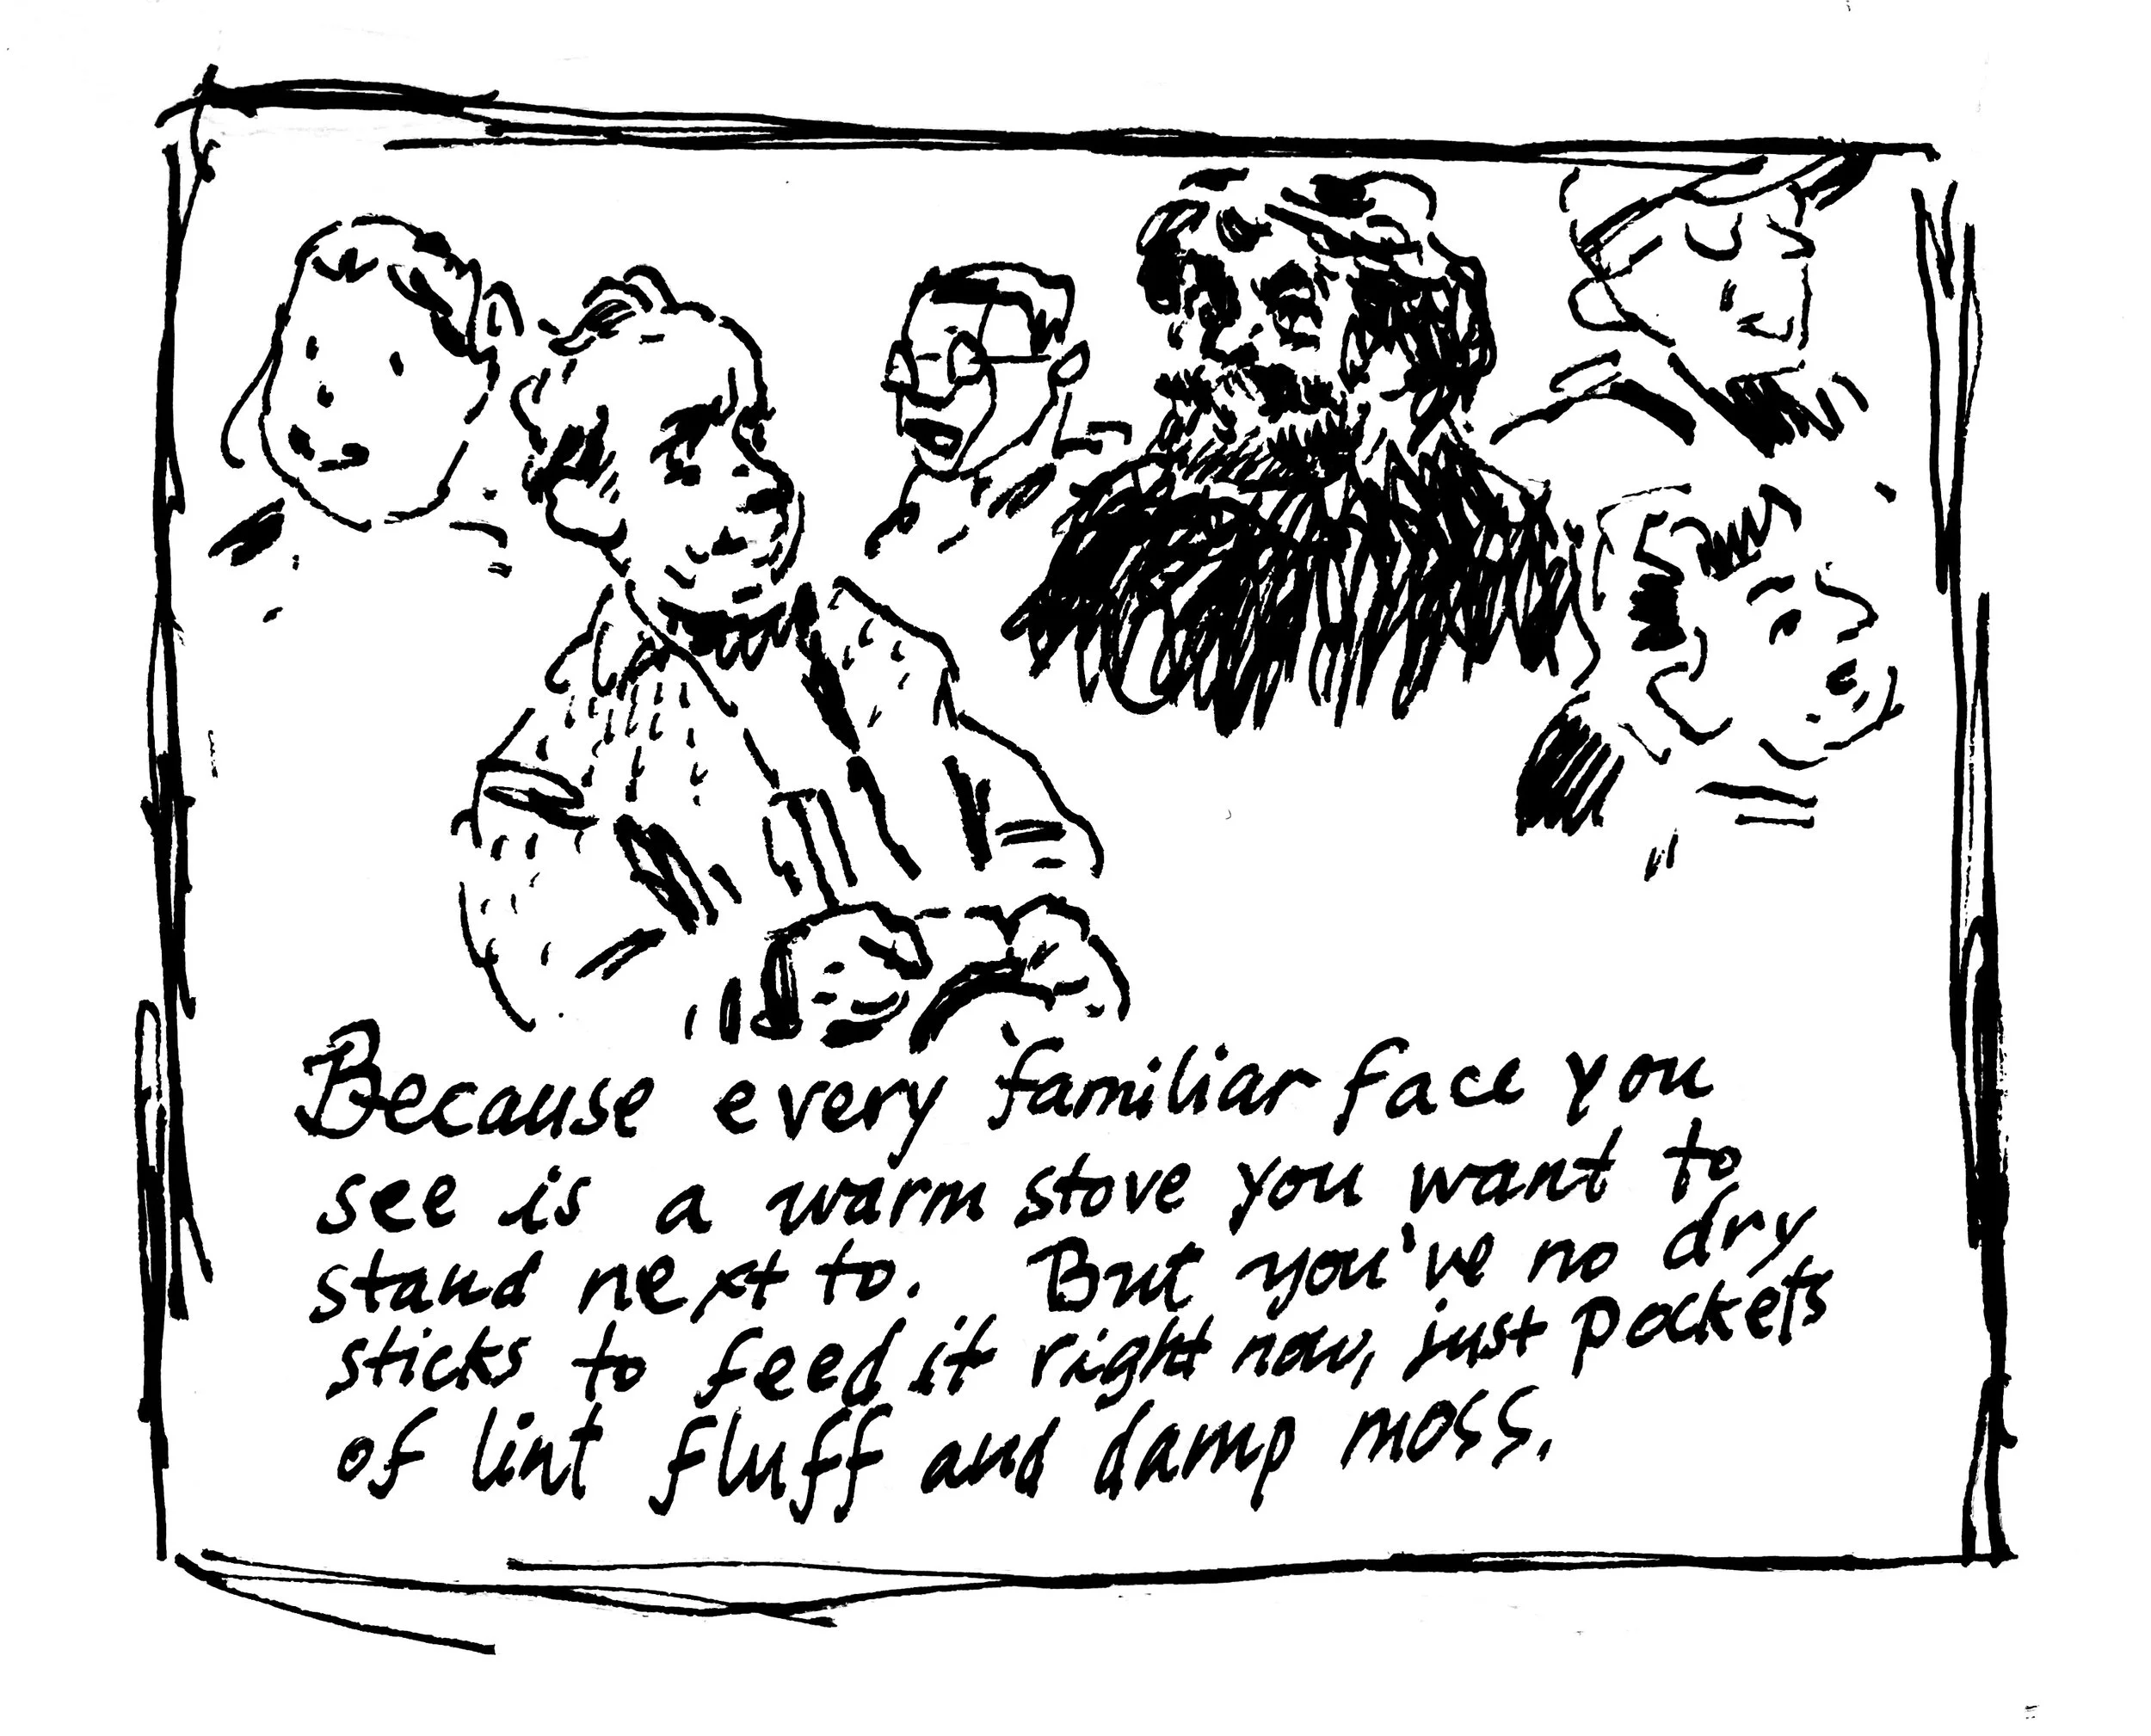 Because every familiar face you
see is a warm stove you want to
stand next to. But you've no dry
sticks to feed it right now, just pockets
of lint fluff and damp moss.